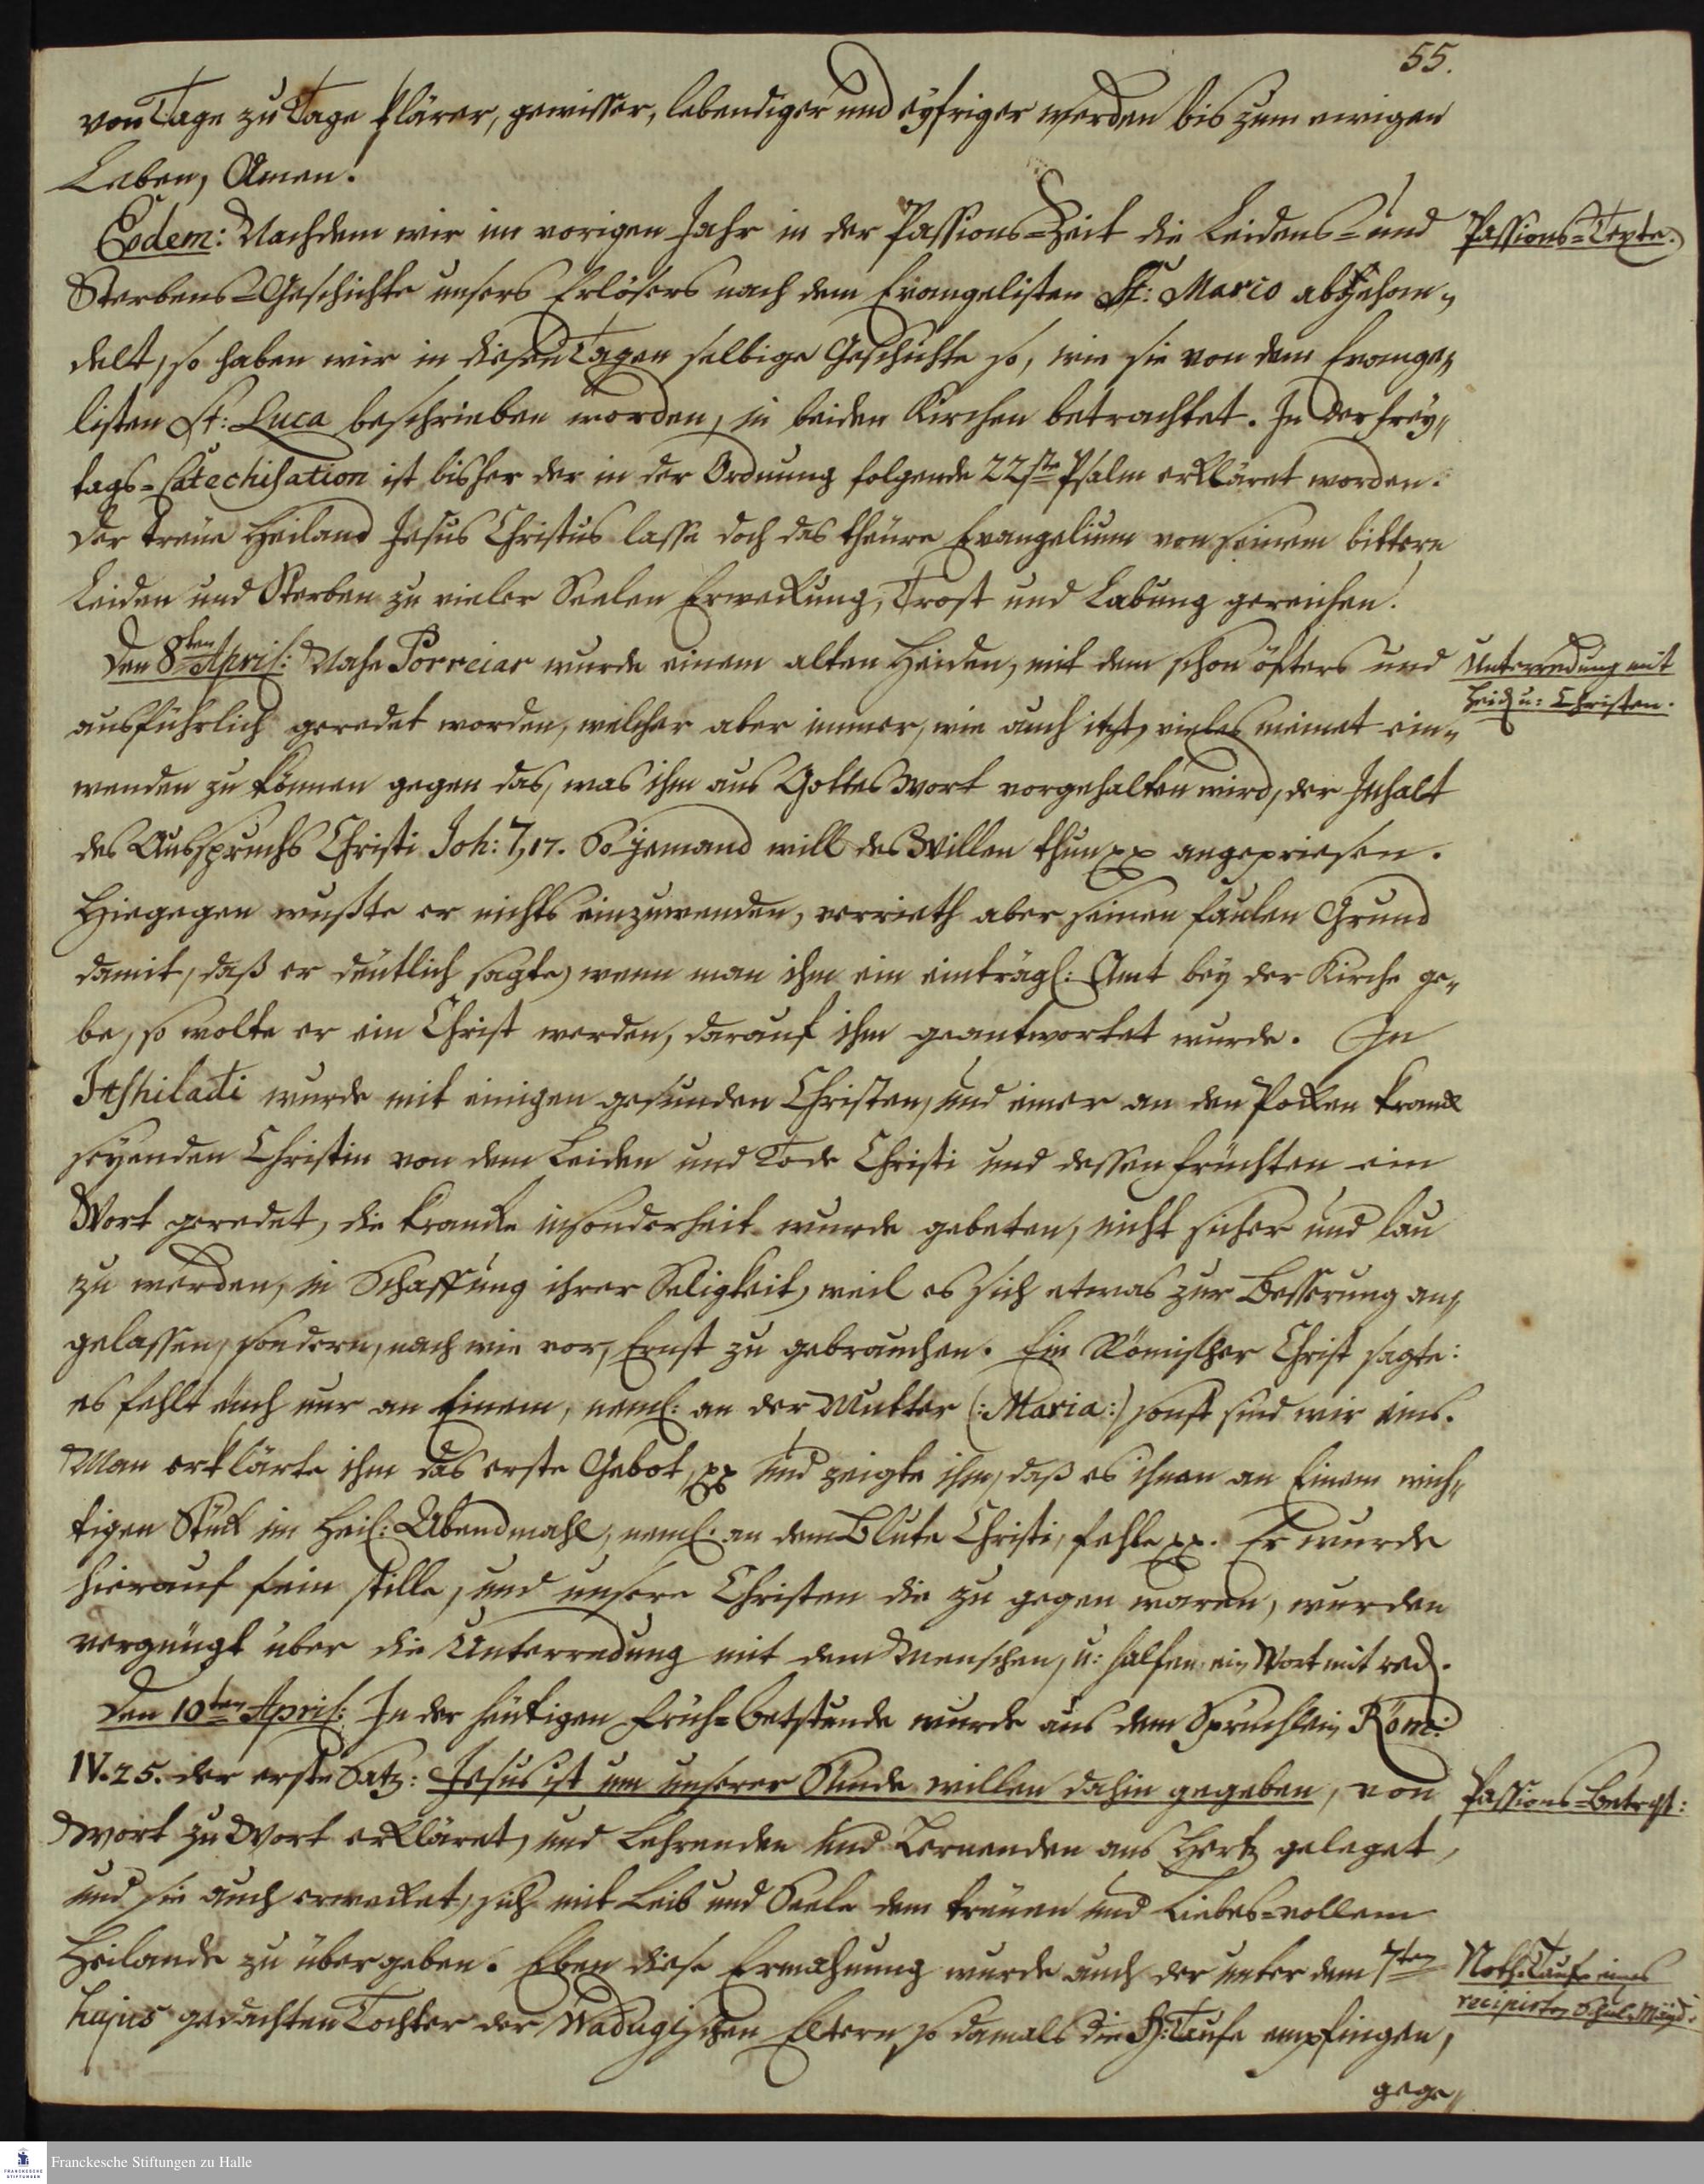 55.
von Tage zu Tage klärer, gewisser, lebendiger und eyfriger werden bis zum ewigen
Leben, Amen!
Eodem: Nachdem wir im vorigen Jahr in der Passions=Zeit die Leidens= und
Passions=Texte.
Sterbens=Geschichte unsers Erlösers nach dem Evangelisten St: Marco abgehan„
delt, so haben wir in diesen Tagen selbige Geschichte so, wie sie von dem Evange„
listen St: Luca beschrieben worden, in beiden Kirchen betrachtet. In der Frey„
tags=Catechisation ist bisher der in der Ordnung folgende 22ste Psalm erkläret worden.
Der treüe Heiland Jesus Christus lasse doch das theüre Evangelium von seinem bittern
Leiden und Sterben zu vieler Seelen Erweckung, Trost und Labung gereichen!
Den 8ten April: Nahe Porreiar wurde einem alten Heiden, mit dem schon öfters und
Unterredung mit
Heid u: Christen.
ausführlich geredet worden, welcher aber immer, wie auch itzt, vieles meinet ein„
wenden zu können gegen das, was ihm aus Gottes Wort vorgehalten wird, der Inhalt
des Ausspruchs Christi Joh: 7,17. So jemand will des Willen thun pp angepriesen.
Hiegegen wußte er nichts einzuwenden, verrieth aber seinen faulen Grund
damit, daß er deütlich sagte, wenn man ihm ein einträgl: Amt bey der Kirche ge„
be, so wolte er ein Christ werden, darauf ihm geantwortet wurde. In
Itshiladi wurde mit einigen gesunden Christen, und einer an den Pocken kranck
seyenden Christin von dem Leiden und Tode Christi und dessen Früchten ein
Wort geredet, die Krancke insonderheit wurde gebeten, nicht sicher und lau
zu werden, in Schaffung ihrer Seligkeit, weil es sich etwas zur Besserung an„
gelassen, sondern, nach wie vor, Ernst zu gebrauchen. Ein Römischer Christ sagte:
es fehlt eüch nur an Einem, neml: an der Mutter (: Maria :) sonst sind wir eins.
Man erklärte ihm das erste Gebot, pp und zeigte ihm, daß es ihnen an Einem wich„
tigen Stück im Heil: Abendmahl, neml: an dem Blute Christi, fehle pp. Er wurde
hierauf fein stille, und unsere Christen die zu gegen waren, wurden
vergnügt über die Unterredung mit dem Menschen, u: halfen ein Wort mit red.
Den 10ten April: In der heütigen Früh=Betstunde wurde aus dem Sprüchlein Röm:
IV.25. der erste Satz: Jesus ist um unserer Sünde willen dahin gegeben, von
Passions=Betrcht:
Wort zu Wort erkläret, und Lehrenden und Lernenden ans Hertz geleget,
und sie auch erwecket, sich mit Leib und Seele dem treüen und Liebes=vollem
Heilande zu übergeben. Eben diese Ermahnung wurde auch der unter dem 7ten
Noth=Taufe eines
recipirten Schul=Mägd:
hujus gedachten Tochter der Wadugischen Eltern, so damals die H: Taufe empfingen,
gege„
Franckesche Stiftungen zu Halle